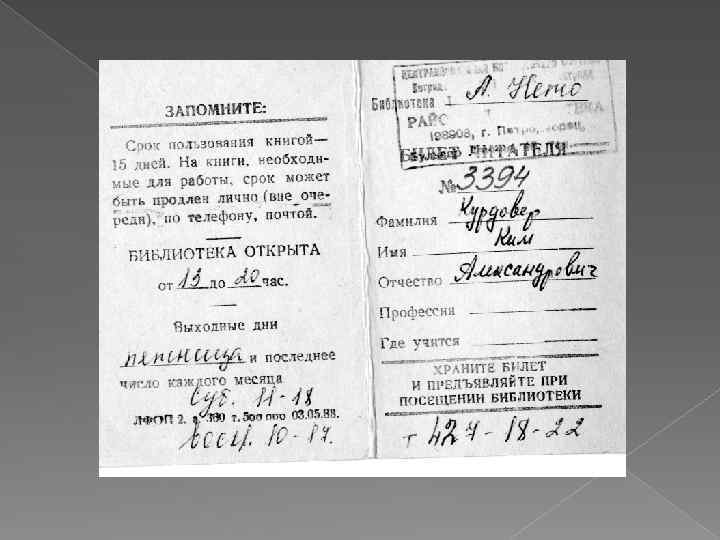 ЗАПОМНИТЕ:
Срок пользования книгой—
15 дней. На книги, необходи-
мые для работы, срок может
быть продлен лично (вне оче-
реди), по телефону, почтой.
БИБЛИОТЕКА ОТКРЫТА
от 13 до 20 час.
Выходные дни
пятница и последнее
число каждого месяца
Суб. 11-18
ЛФОП 2. з. 380 т. 500 000 03.05.88.
воск. 10-17.
Библиотека
А. Нето
РАЙО
198903, г. Петродворец,
БИЛЕТ ЧИТАТЕЛЯ
№ 3394
Фамилия Курдовер
Имя Ким
Отчество Александрович
Профессия
Где учится
ХРАНИТЕ БИЛЕТ
И ПРЕДЪЯВЛЯЙТЕ ПРИ
ПОСЕЩЕНИИ БИБЛИОТЕКИ
т 427-18-22